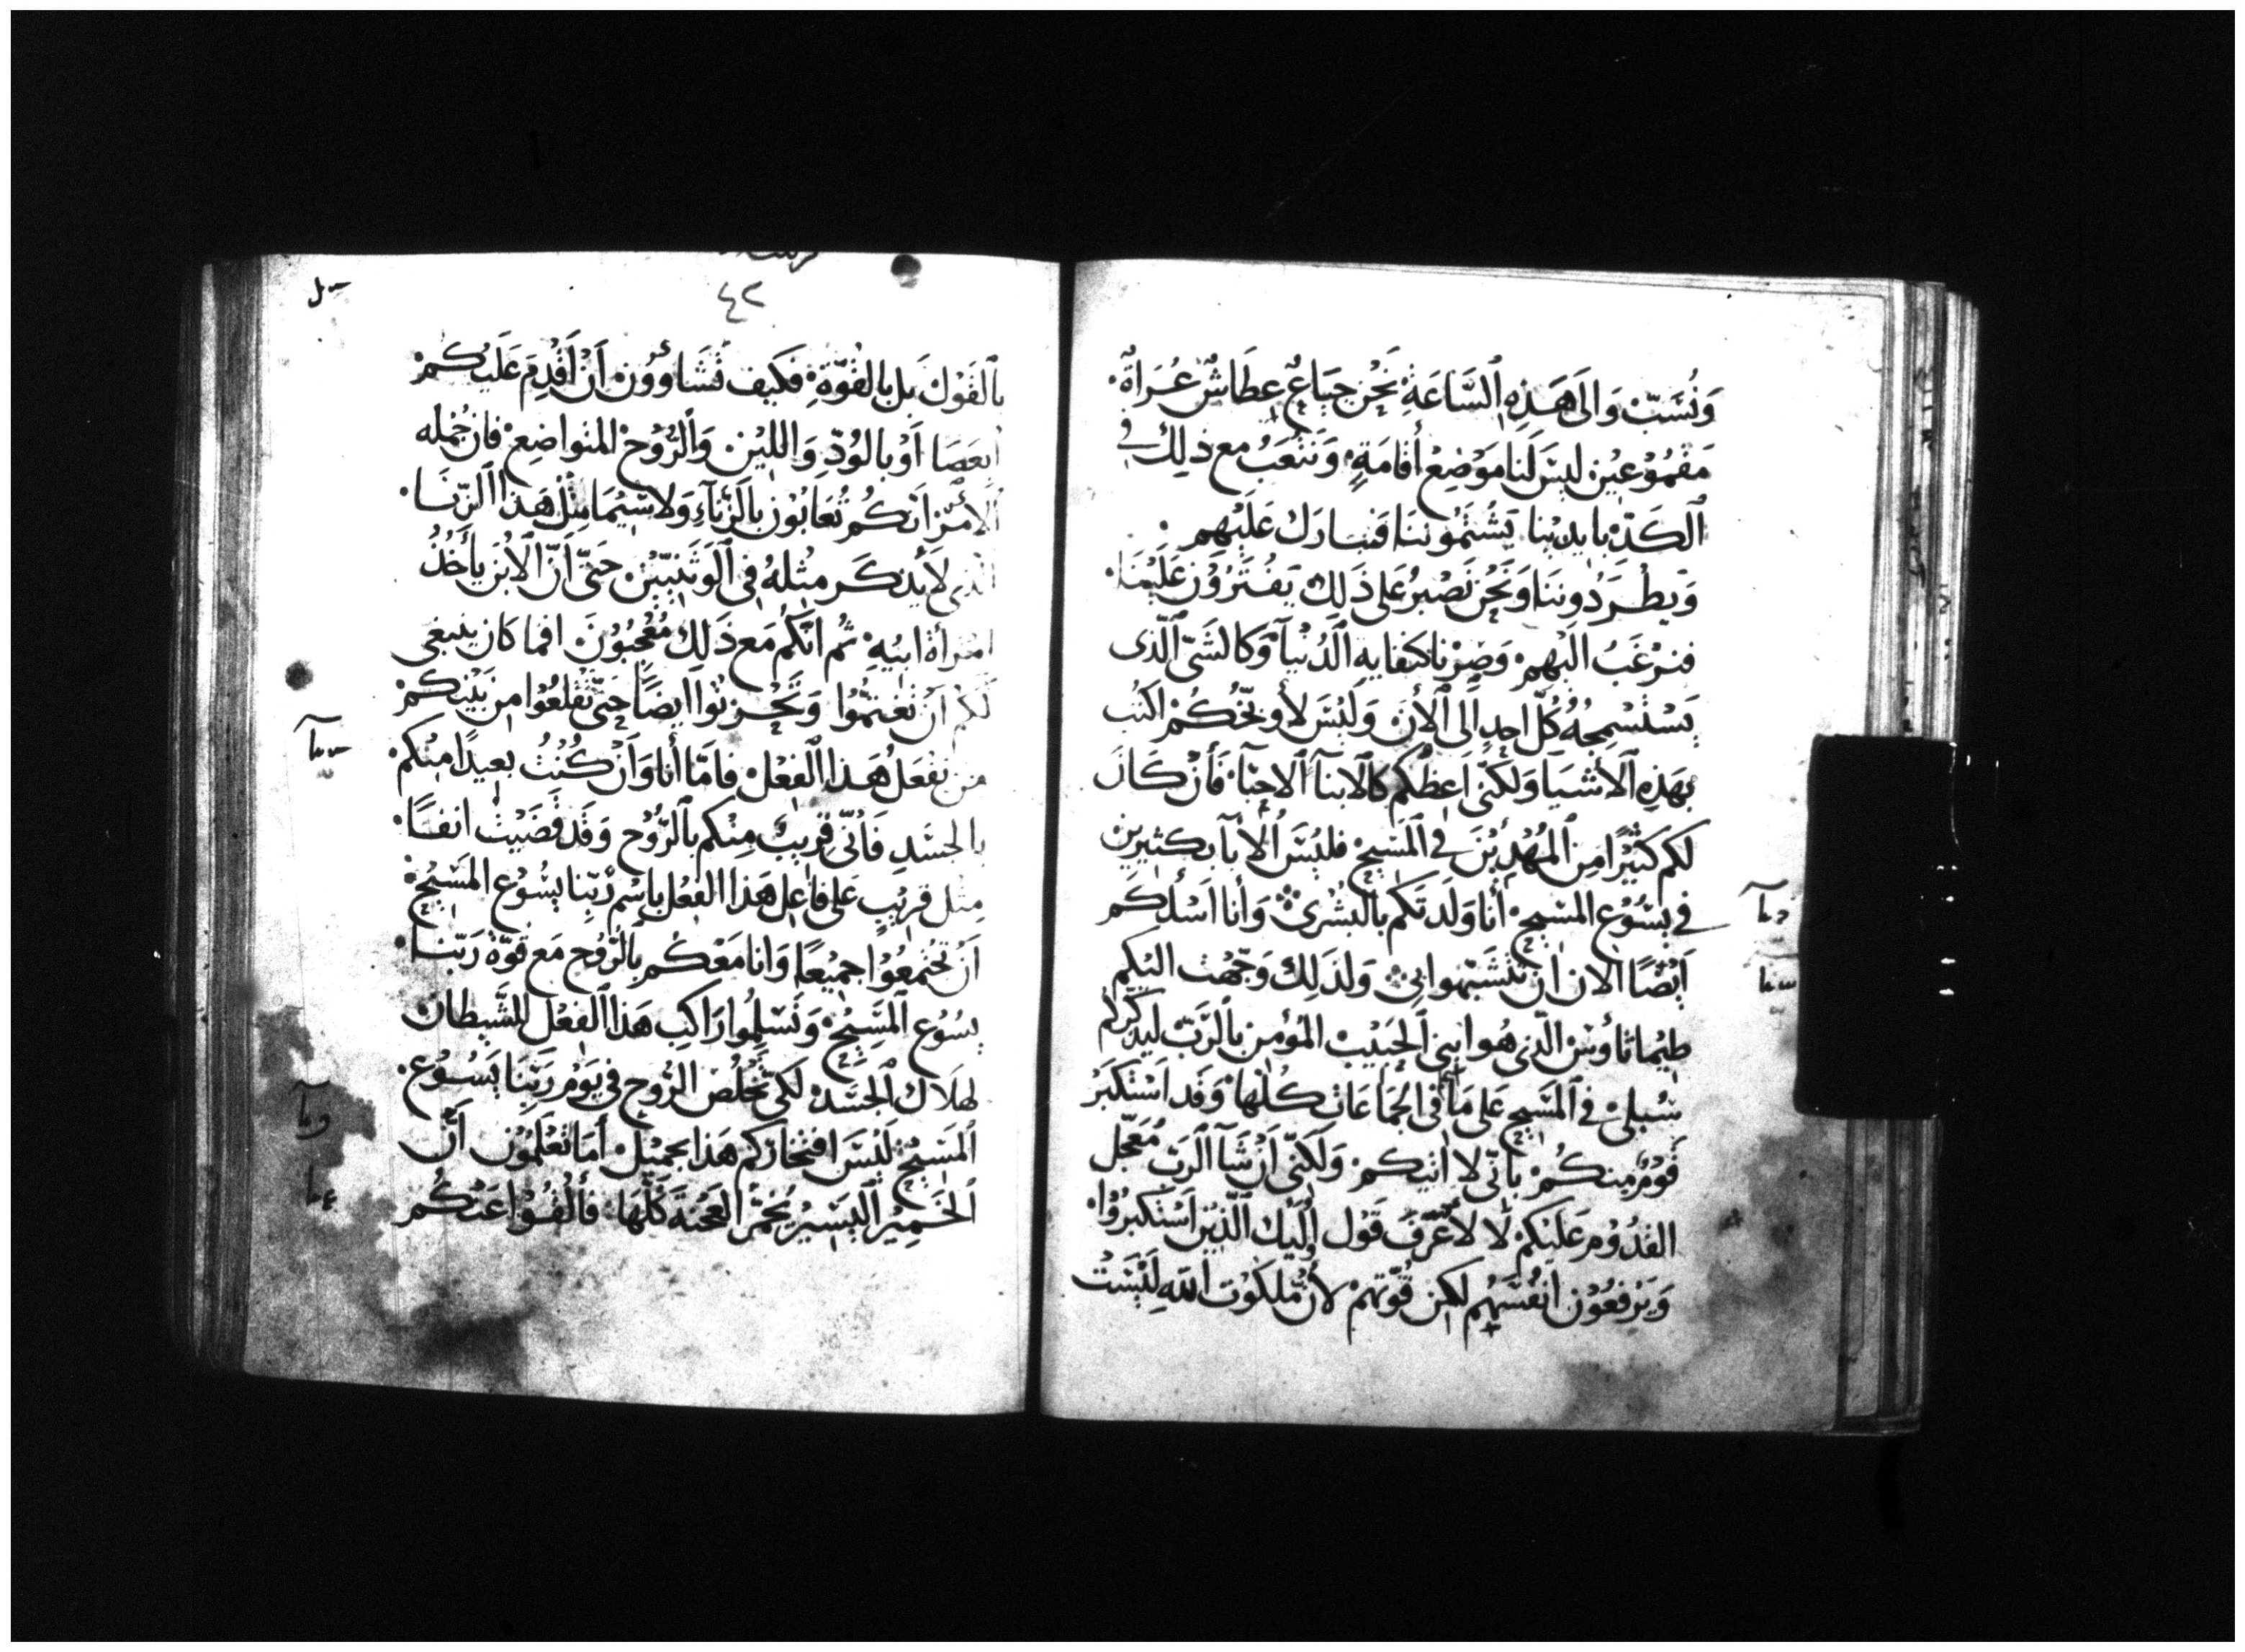 وَنُسَبّ وَالَى هَذِهِ ٱلسَّاعَةِ نَحْن جِيَاعٌ عِطَاشٌ عُرَاةٌ
مَقْمُوْعِيْن ليسَ لَنا مَوْضِعْ أقامَةٍ وَنَتْعَبُ مع ذلِك في
ٱلكَدّ بايدينا يَشْتمُوننَا فنبارَك عَلَيْهِم
وَيطْردُونَنا وَنَحْن نَصْبرُ عَلى ذَلِكَ يَفْتَرُوْن عَلَيْنا
فنرْغَبُ اليْهم وَصِرْنا كنفايه ٱلدُنْيآ وَكالشَىّ ٱلّذى
يَسْتَسْمِجهُ كُلّ احدٍ الَى ٱلأن وَلَيْسَ لأوبّخكُمْ اكتب
بهَذِهِ ٱلأشيَا وَلكنّى اَعظكم كالابنآ ٱلاحبّآ فَأن كَانَ
لكم كَثيْرًا مِن ٱلمُهْدِيْنَ في ٱلمَسِيح فليْسَ ٱلأبآ بكثيرين
في يسُوْع المسِيح أنا وَلَدتكم بالبُشْرىٰ وَأنا اَسْئلكم
اَيْضًا الان ان تَتَشَبّهوا بىْ وَلذلِكَ وَجّهْت اليْكم
طيْماثاوُسْ الّذى هُو ابنى ٱلحَبيْب المؤمن بالرَّبّ ليذكركم
سُبلىْ في المسِيح عَلى مَا في الجمَاعَات كلّها وَقَد اَسْتكبَرَ
قَوْمٌ مِنكُمْ بانّى لا اتيكم وَلَكنّى اَنْ شآ ٱلرَبّ مُعَجّل
القدُوْم عَلَيْكم لا لأعْرف قَول اوْلَيْك الّذيْن اَسْتكبرُوْا
وَيَرْفعُوْن اَنفُسَهُم لكِن قُوّتهمْ لأن مَلكوْت اللّه لَيْسَتْ
٤٢
بٱلقَوْل بَل بالقُوّةِ فكيف تَشَاؤون أَن اَقْدِم عَلَيْكمْ
ابعَصَا اَوْ بالوُدّ وَاللّيْن وَٱلرُّوْح المتواضِع فان جُمْله
ٱلأمْر انكُم تُعَابُوْن بالزِنَآءِ وَلاسَيّمَا مِثْل هَذا ٱلزنا
ٱلذى لاَ يذكَر مثلهُ في ٱلوَثَنيّيْن حَتّى اَنّ ٱلأبن يأخُذُ
امْرأةَ ابيْهِ ثم انّكُم مَع ذَلِكَ مُعْجبُوْنَ افما كان ينبغى
لكم اَن تغتمّوا وَتَحْزنوا ايضًا حَتّى تقْلعُوْا مِن بَيْنِكمْ
مَن يَفعَل هَذا الفعْل فامّا أنا وَاَنْ كُنْتُ بعيدًا مِنْكم
بالجسَدِ فَأنّى قريبٌ مِنْكم بٱلرُوْح وَقَد قَضَيْتُ انفًا
مثل قريْبٍ عَلى فاعِل هَذا الفِعْل باِسْم رَبّنا يسُوْع المسيْح
اَنْ تجْتَمعُوْا جمِيْعًا وَانا مَعَكم بالرُّوح مَع قوّةُ رَبّنا
يسُوْع ٱلمَسِيْح وَتُسَلِمُوا رَاكب هَذا ٱلفعْل للشَّيطان
لهَلَاك ٱلجسَد لكى تَخلُصَ الرُّوح في يَوْم رَبّنا يَسُوع
ٱلمسِيْح لَيْسَ افتخارَكم هَذا بجميْل أمَا تَعْلَمُوْن اَنّ
ٱلخَمِيْر ٱليسِيْر يُخمّر العَجْنَة كلّها فأَلقُوْا عَنْكُم